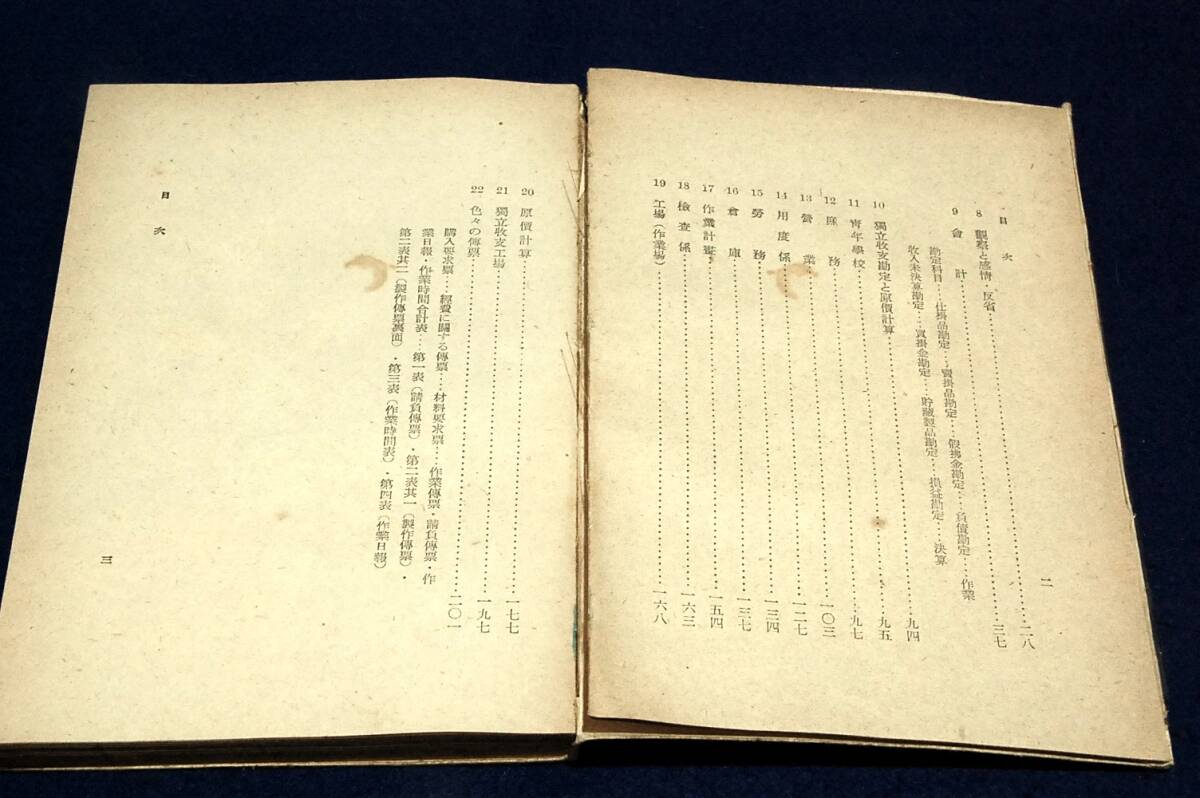 目次 二
8 觀察と感情・反省……二八
9 會計……三七
勘定科目……仕掛品勘定……賣掛品勘定……假拂金勘定……負債勘定……作業
收入未決算勘定……賣掛金勘定……貯藏製品勘定……損益勘定……決算
10 獨立收支勘定と原價計算……九四
11 靑年學校……九五
12 庶務……九七
13 營業……一〇三
14 用度係……一二七
15 勞務……一三四
16 倉庫……一三七
17 作業計畫……一五四
18 檢査係……一六三
19 工場(作業場)……一六八
20 原價計算……一七七
21 獨立收支工場……一九七
22 色々の傳票……二〇一
購入要求票……經費に關する傳票……材料要求票……作業傳票・請負傳票・作
業日報・作業時間合計表……第一表(請負傳票)・第二表其一(製作傳票)・
第二表其二(製作傳票裏面)・第三表(作業時間表)・第四表(作業日報)
目次 三